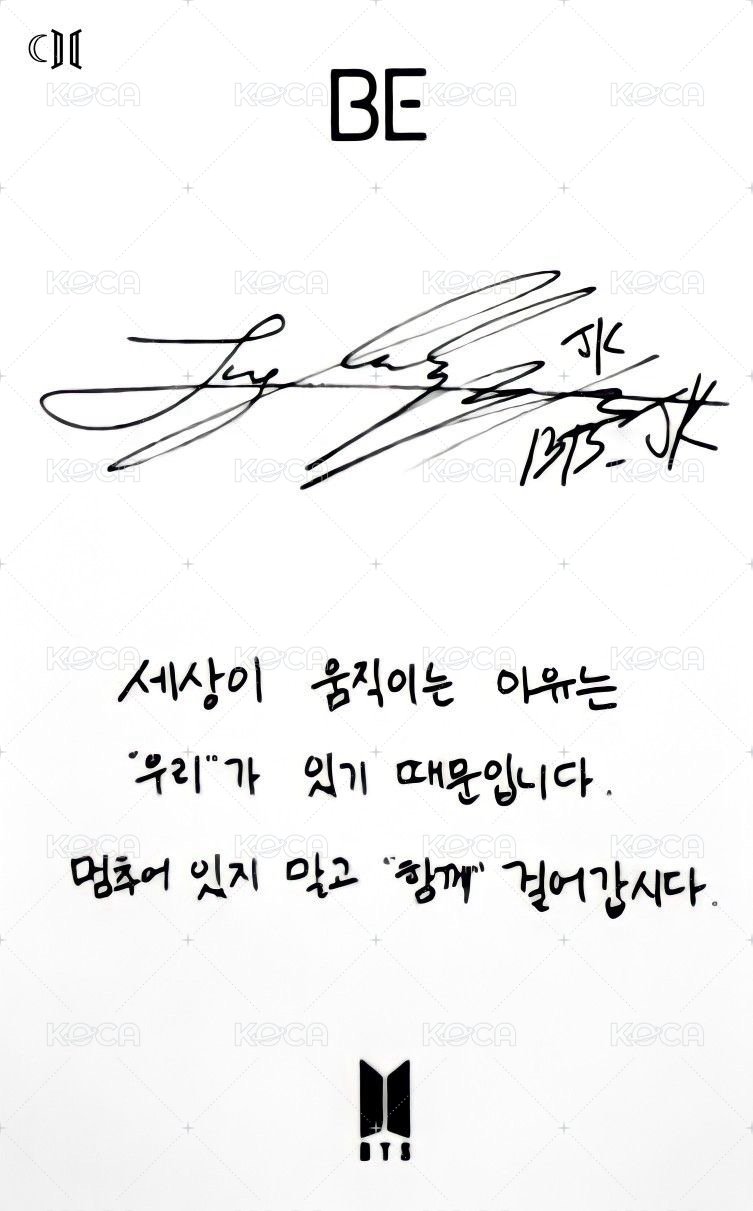 BE
JK
BTS_JK
세상이 움직이는 이유는
"우리"가 있기 때문입니다.
멈추어 있지 말고 "함께" 걸어갑시다.
BTS
KOCA